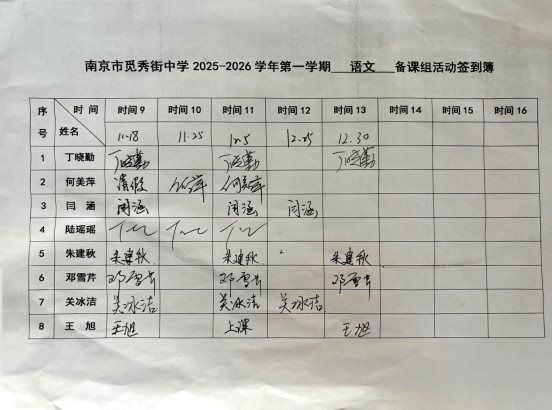 南京市觅秀街中学 2025-2026 学年第一学期 语文 备课组活动签到簿
序号 时间 姓名 时间 9 时间 10 时间 11 时间 12 时间 13 时间 14 时间 15 时间 16
11.18 11.25 12.5 12.25 12.30
1 丁晓勤 丁晓勤 丁晓勤 丁晓勤
2 何美萍 请假 何萍 何美萍
3 闫涵 闫涵 闫涵 闫涵
4 陆瑶瑶
5 朱建秋 朱建秋 朱建秋 朱建秋
6 邓雪芹 邓雪芹 邓雪芹 邓雪芹
7 关冰洁 关冰洁 关冰洁 关冰洁
8 王旭 王旭 上课 王旭